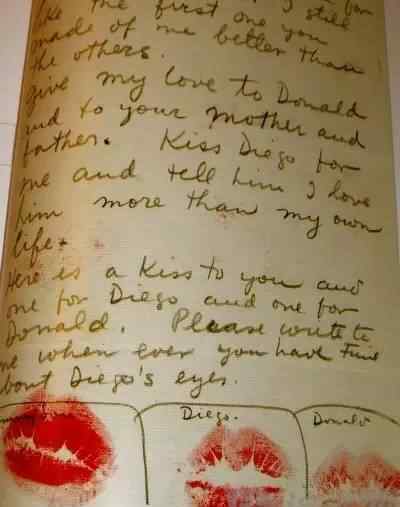 for
like the first one you
I still
made of me better than
the others.
Give my love to Donald
and to your mother and
father. Kiss Diego for
me and tell him I love
him more than my own
life.
Here is a Kiss to you and
one for Diego and one for
Donald. Please write to
me when ever you have time
about Diego's eyes.
Diego.
Donald